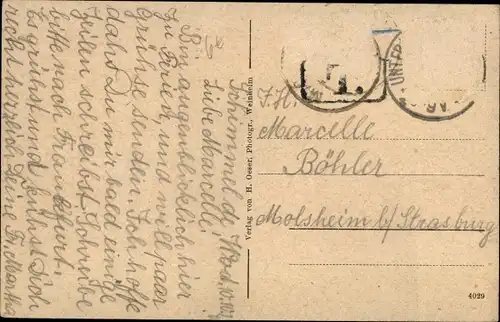 Schimmeldg,
Liebe Marcelle,
Bin augenblicklich hier
in Ferien und will paar
Grüsse senden. Ich hoffe
dass Du mir bald einige
Zeilen schreibst. Schreibe
bitte nach Frankfurt.
Es grüsst und küsst Dich
recht herzlich Deine Fr. Martha
Verlag von H. Oeser, Photogr., Weinheim
UNTER
T.
Marcelle
Böhler
Molsheim b/Strasburg
4029